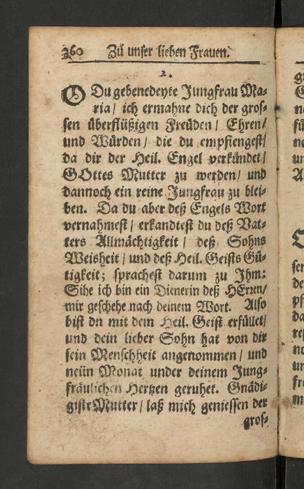 360 Zu unser lieben Frauen.
2.
O Du gebenedeyte Jungfrau Ma-
ria / ich ermahne dich der gros-
sen überflüßigen Freüden / Ehren /
und Würden / die du empfiengest /
da dir der Heil. Engel verkündet /
GOttes Mutter zu werden / und
dannoch ein reine Jungfrau zu blei-
ben. Da du aber deß Engels Wort
vernahmest / erkandtest du deß Vat-
ters Allmächtigkeit / deß Sohns
Weisheit / und deß Heil. Geists Gü-
tigkeit; sprachest darum zu Ihm:
Sihe ich bin ein Dienerin deß HErren /
mir geschehe nach deinem Wort. Also
bist dn mit dem Heil. Geist erfüllet /
und dein lieber Sohn hat von dir
sein Menschheit angenommen / und
neün Monat under deinem Jung-
fräulichen Hertzen geruhet. Gnädi-
giste Mutter / laß mich geniessen der
gros-